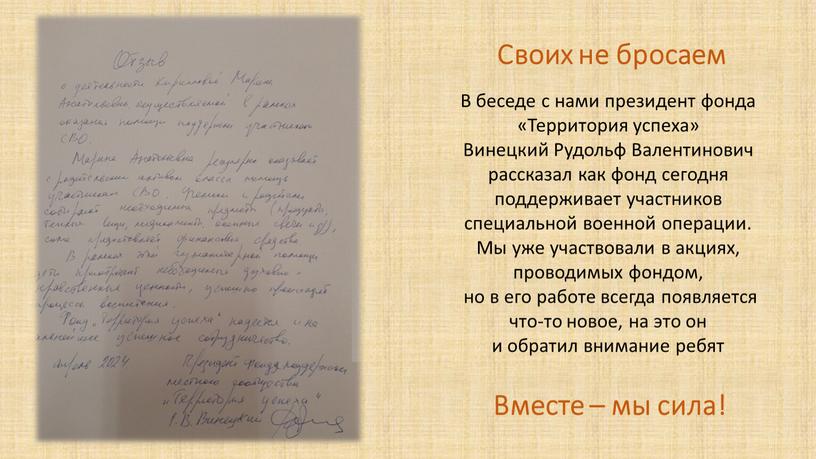 Отзыв
о деятельности Кирилловой Марины
Анатольевны, осуществляемой в рамках
оказания помощи поддержки участникам
СВО.
Марина Анатольевна регулярно оказывает
с родительским активом класса помощь
участникам СВО. Ученики и родители
собирают необходимые предметы (продукты,
теплые вещи, медикаменты, окопные свечи и др),
финансовые средства
В рамках этой гуманитарной помощи
дети приобретают необходимые духовно-
нравственные ценности, успешно происходят
процессы воспитания.
Фонд „Территория успеха" надеется и на
дальнейшее успешное сотрудничество.
апрель 2024 Президент Фонда поддержки
местного сообщества
„Территория успеха"
Р.В. Винецкий
Своих не бросаем
В беседе с нами президент фонда
«Территория успеха»
Винецкий Рудольф Валентинович
рассказал как фонд сегодня
поддерживает участников
специальной военной операции.
Мы уже участвовали в акциях,
проводимых фондом,
но в его работе всегда появляется
что-то новое, на это он
и обратил внимание ребят
Вместе – мы сила!